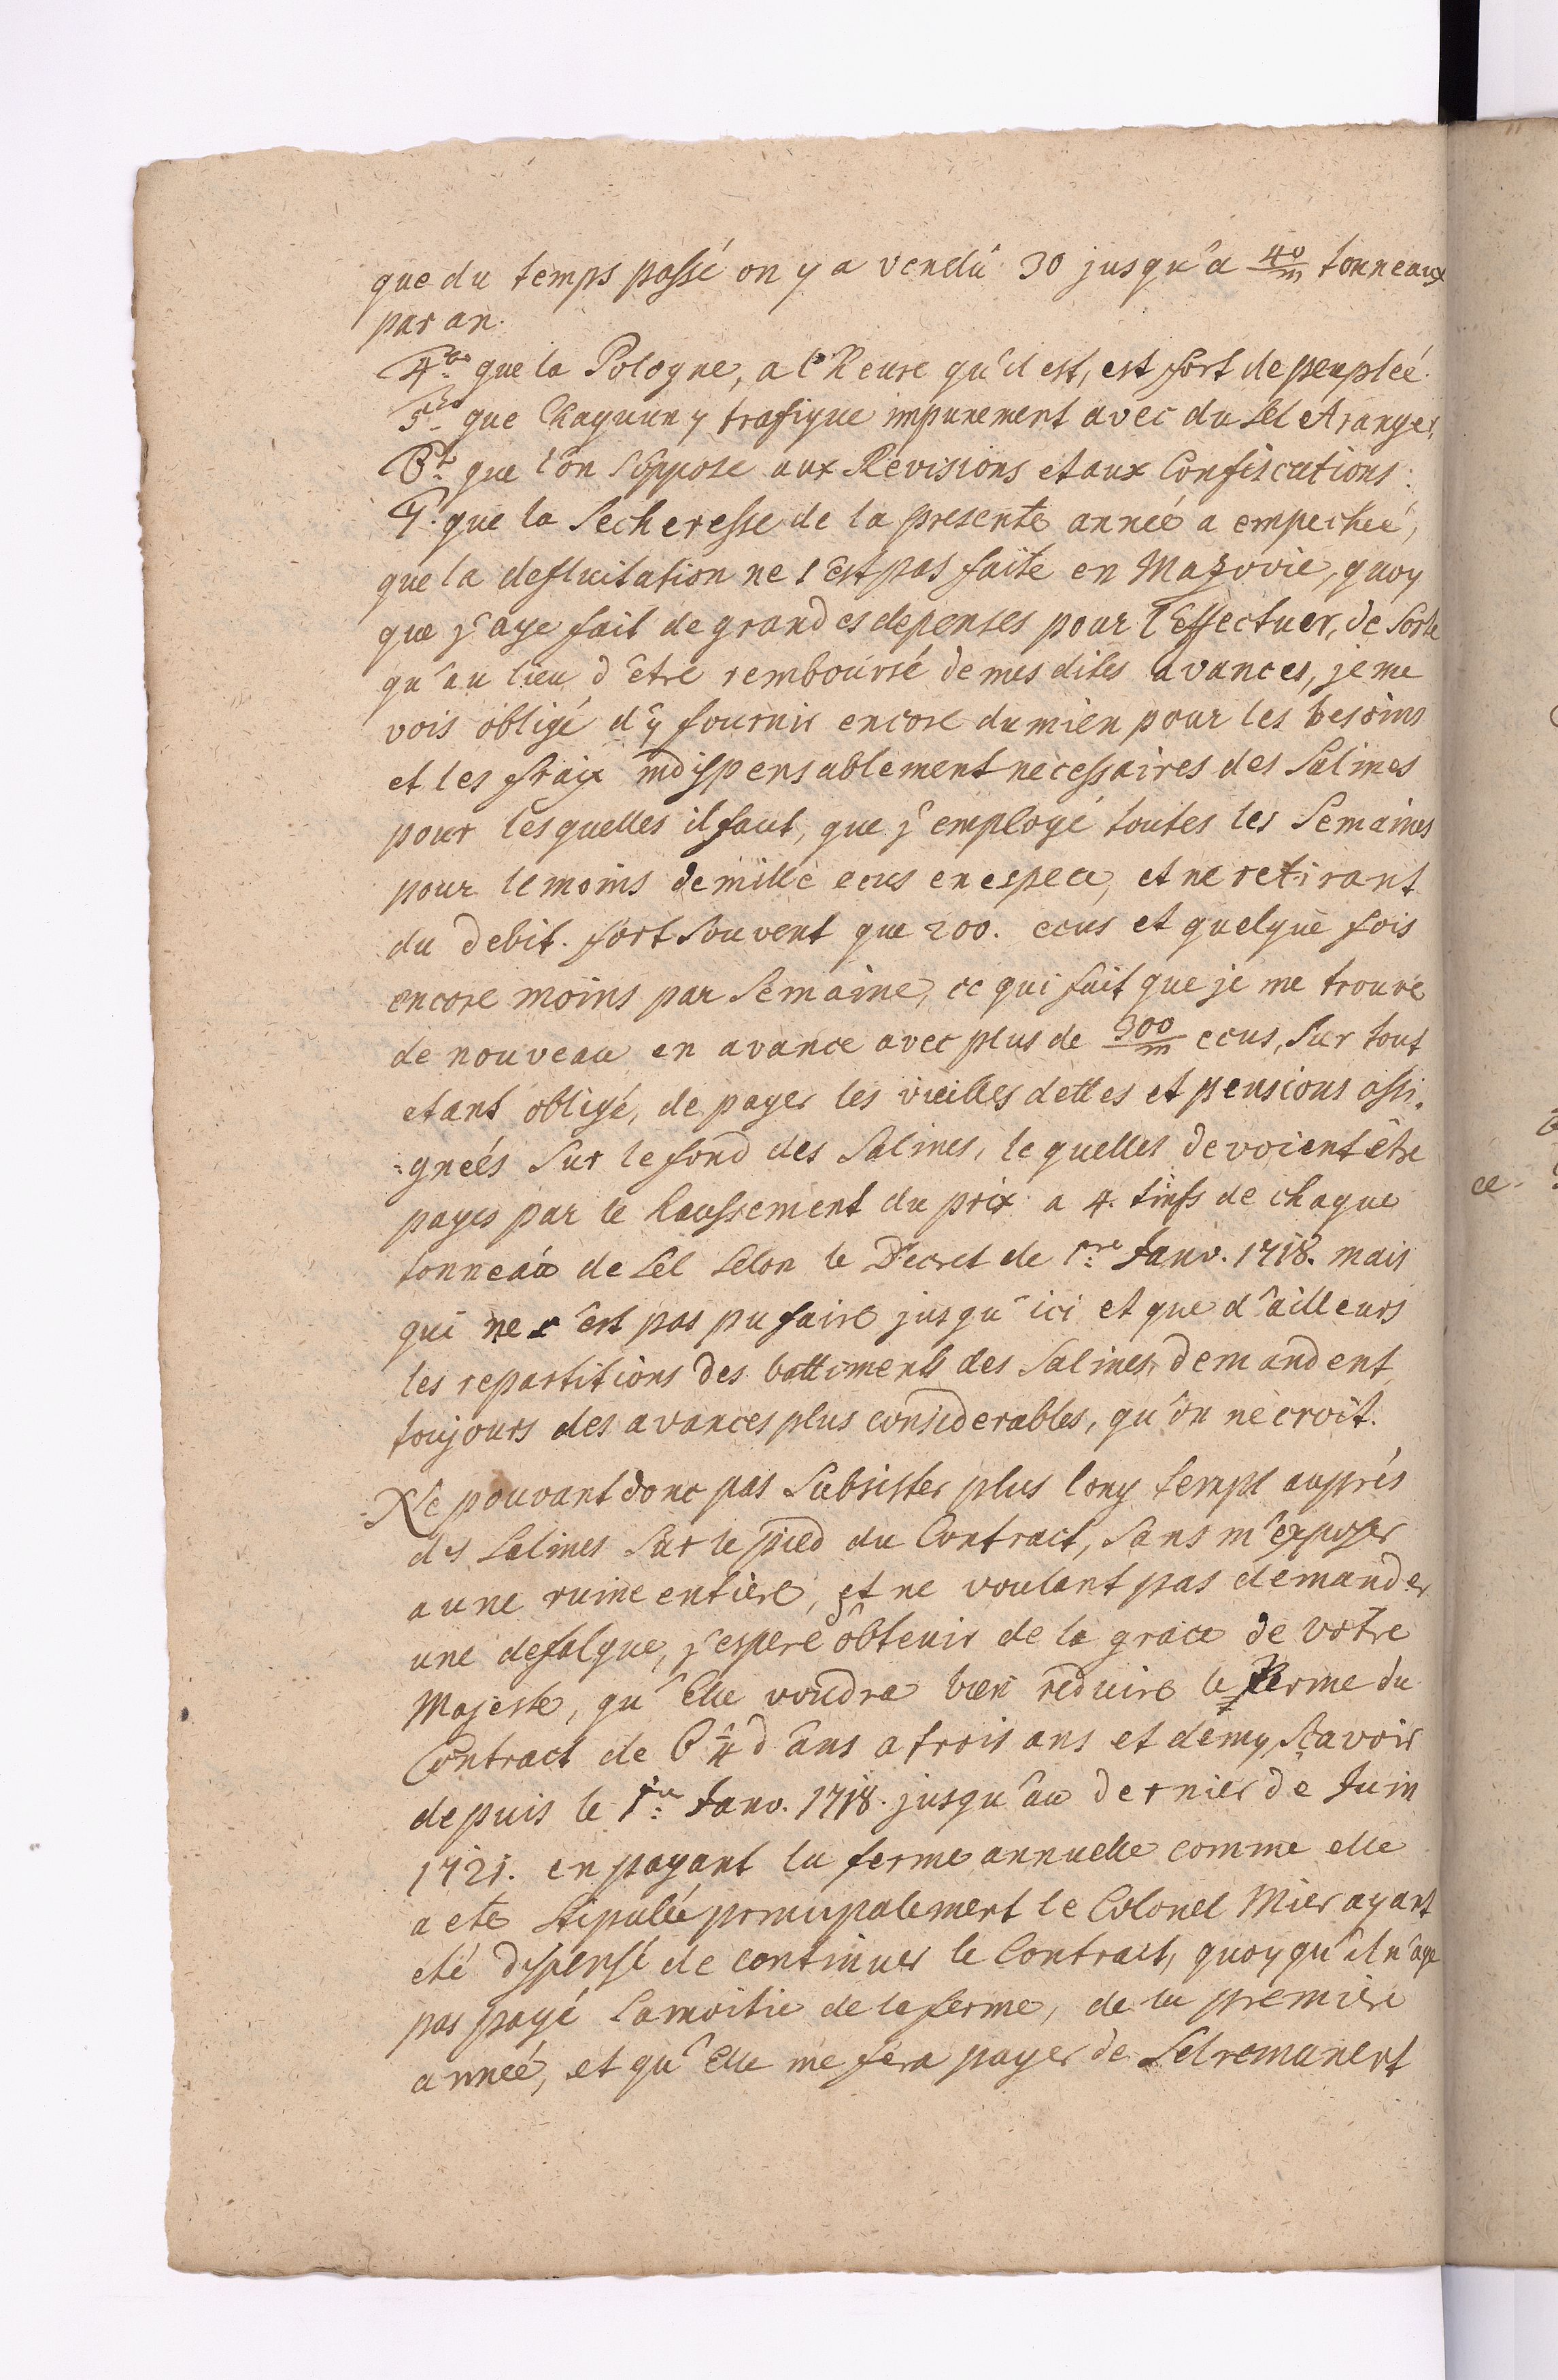 que du temps passé on y a vendû 30 jusqu'a 40/m tonneaux
par an.
4to que la Pologne, a l'Heure qu'il est, est fort depeupleé.
5to que Chaquun y trafique impunement avec du Sel etranger,
6to que l'on s'oppose aux Revisions et aux Confiscations:
7. que la Secheresse de la presente année a empecheé,
que la defluitation ne s'est pas faite en Mazovie, quoy
que j'aye fait de grandes depenses pour l'Effectuer, de sorte
qu'au lieu d'être remboursé de mes dites avances, je me
vois obligé d'y fournir encore du mien pour les besoins
et les fraix indispensablement necessaires des Salines
pour lesquelles il faut, que j'employe toutes les Semaines
pour le moins de mille ecus en espece, et ne retirant
du debit. fort souvent que 200. ecus et quelque fois
encore moins par Semaine, ce qui fait que je me trouve
de nouveau en avance avec plus de /m ecus, sur tout
etant obligé, de payer les vieilles dettes et pensions assi-
:gneés sur le fond des Salines, lequelles devoient être
payes par le haussement du prix a 4. tinfs de chaque
tonneau de Sel selon le Decret de 1re Janv. 1718. mais
qui ne s'est pas pu faire jusqu'ici et que d'ailleurs
les repartitions des battiments des Salines demandent
toujours des avances plus considerables, qu'on ne croit.
Ne pouvant donc pas Subsister plus long temps auprés
des Salines sur le pied du Contract, sans m'exposer
a une ruine entiere, et ne voulant pas demander
une defalque, j'espere obtenir de la grace de votre
Majesté, qu'Elle voudra bien reduire le Terme du
Contract de 6 1/4 d'ans a trois ans et demy, sçavoir
depuis le 1re Janv. 1718. jusqu'au dernier de Juin
1721. en payant la ferme annuelle comme elle
a eté stipulée principalement le Colonel Mier ayant
eté dispensé de continuer le Contract, quoyqu'il n'aye
pas payé la moitie de la ferme, de la premiere
anneé, et qu'Elle me fera payer de Sel remanent
ce